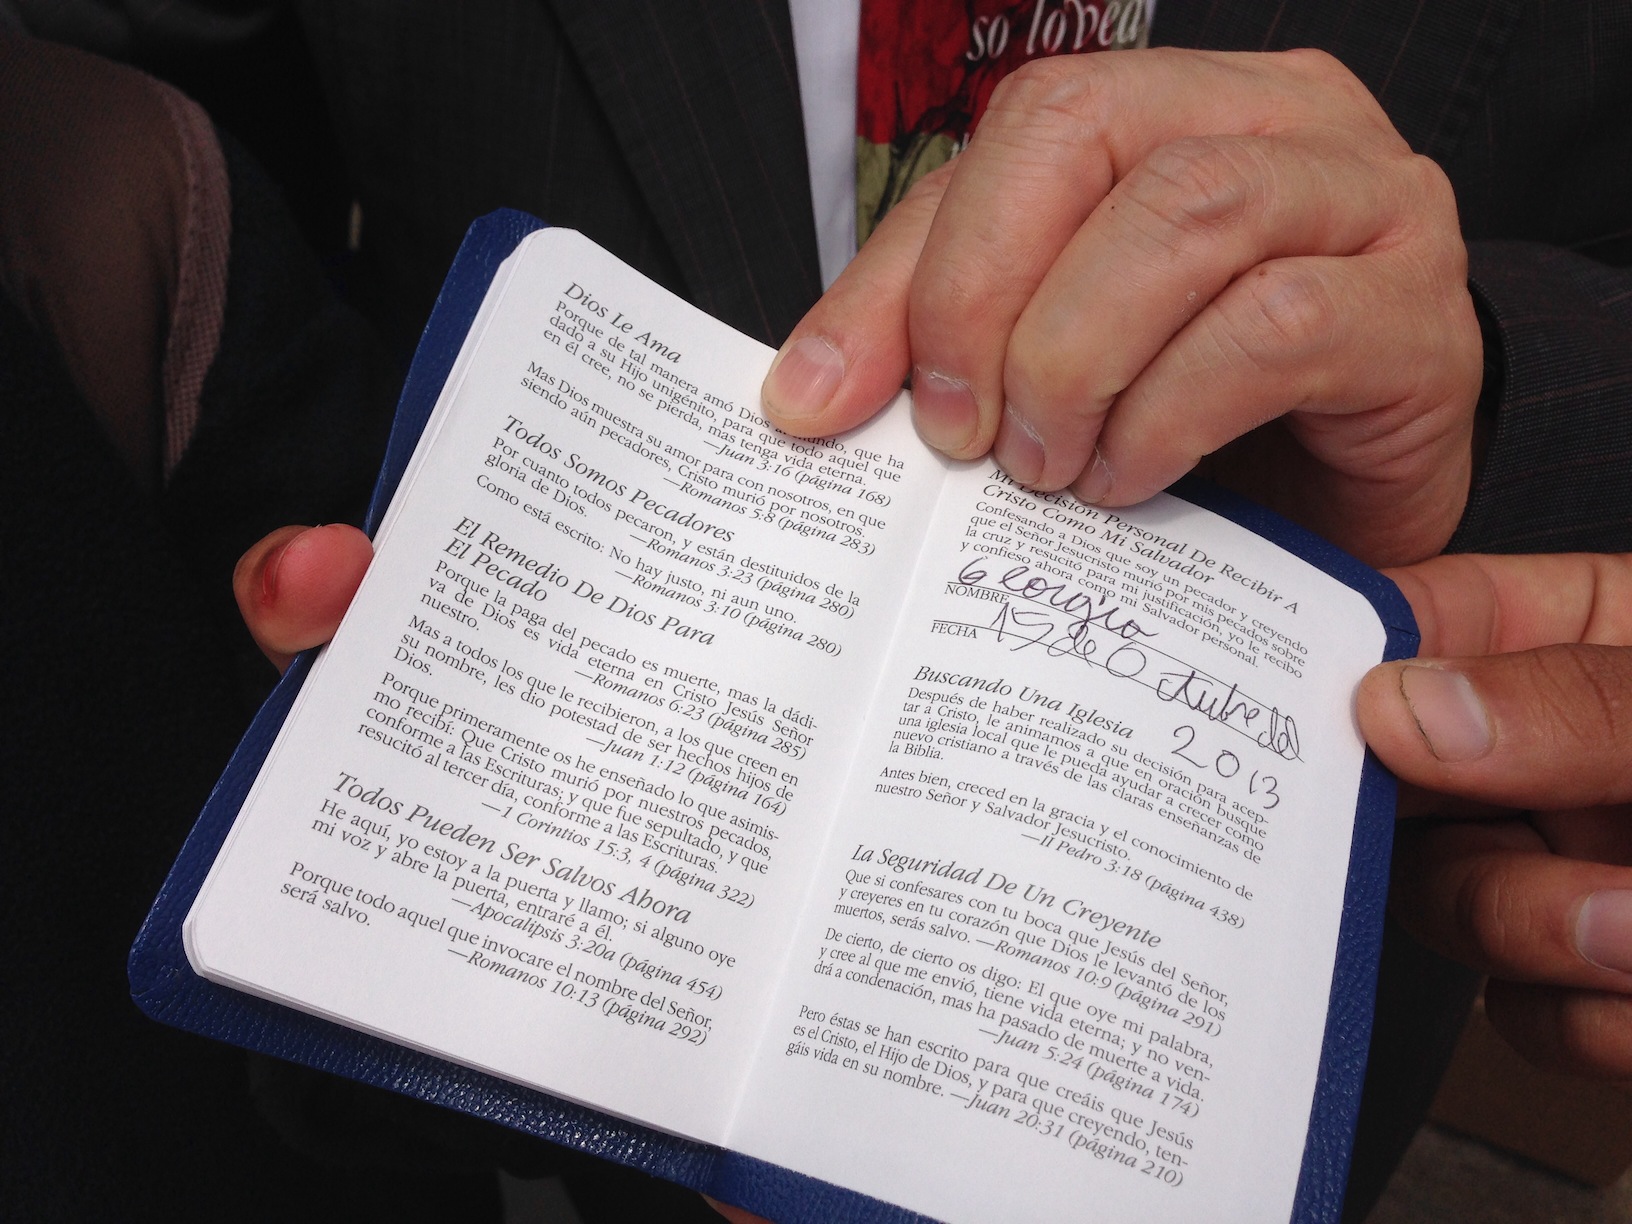 so loved
Dios Le Ama
Porque de tal manera amó Dios al mundo, que ha
dado a su Hijo unigénito, para que todo aquel que
en él cree, no se pierda, mas tenga vida eterna.
—Juan 3:16 (página 168)
Mas Dios muestra su amor para con nosotros, en que
siendo aún pecadores, Cristo murió por nosotros.
—Romanos 5:8 (página 283)
Todos Somos Pecadores
Por cuanto todos pecaron, y están destituidos de la
gloria de Dios.
—Romanos 3:23 (página 280)
Como está escrito: No hay justo, ni aun uno.
—Romanos 3:10 (página 280)
El Remedio De Dios Para
El Pecado
Porque la paga del pecado es muerte, mas la dádi-
va de Dios es vida eterna en Cristo Jesús Señor
nuestro.
—Romanos 6:23 (página 285)
Mas a todos los que le recibieron, a los que creen en
su nombre, les dio potestad de ser hechos hijos de
Dios.
—Juan 1:12 (página 164)
Porque primeramente os he enseñado lo que asimis-
mo recibí: Que Cristo murió por nuestros pecados,
conforme a las Escrituras; y que fue sepultado, y que
resucitó al tercer día, conforme a las Escrituras.
—1 Corintios 15:3, 4 (página 322)
Todos Pueden Ser Salvos Ahora
He aquí, yo estoy a la puerta y llamo; si alguno oye
mi voz y abre la puerta, entraré a él.
—Apocalipsis 3:20a (página 454)
Porque todo aquel que invocare el nombre del Señor,
será salvo.
—Romanos 10:13 (página 292)
Mi Decisión Personal De Recibir A
Cristo Como Mi Salvador
Confesando a Dios que soy un pecador y creyendo
que el Señor Jesucristo murió por mis pecados sobre
la cruz y resucitó para mi justificación, yo le recibo
y confieso ahora como mi Salvador personal.
Georgio
NOMBRE
15 de Octubre del
FECHA
2013
Buscando Una Iglesia
Después de haber realizado su decisión para acep-
tar a Cristo, le animamos a que en oración busque
una iglesia local que le pueda ayudar a crecer como
nuevo cristiano a través de las claras enseñanzas de
la Biblia.
Antes bien, creced en la gracia y el conocimiento de
nuestro Señor y Salvador Jesucristo.
—II Pedro 3:18 (página 438)
La Seguridad De Un Creyente
Que si confesares con tu boca que Jesús es el Señor,
y creyeres en tu corazón que Dios le levantó de los
muertos, serás salvo. —Romanos 10:9 (página 291)
De cierto, de cierto os digo: El que oye mi palabra,
y cree al que me envió, tiene vida eterna; y no ven-
drá a condenación, mas ha pasado de muerte a vida.
—Juan 5:24 (página 174)
Pero éstas se han escrito para que creáis que Jesús
es el Cristo, el Hijo de Dios, y para que creyendo, ten-
gáis vida en su nombre. —Juan 20:31 (página 210)